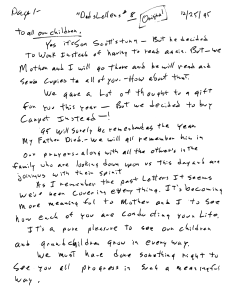 Page 1-
"Dadsletters" # 8 (Unique) 12/25/95
To all our children:
Yes it is on Scott's turn - But he decided
To Work Instead of having to read again. But - we
Mother and I will go there and he will read and
send Copies to all of you. - How about that.
We gave a lot of thought to a gift
for you this year - But we decided to buy
Carpet Instead -!
95 will surely be remembered as the year
My Father Died. - We will all remember him in
our prayers - along with all the others in the
family who are looking down upon us this day and are
joining us with their spirit
As I remember the past Letters It seems
we've been covering everything. It's becoming
more meaningful to Mother and I to see
how each of you are conducting your life.
It's a pure pleasure to see our children
and Grandchildren grow in every way.
We must have done something right to
see you all progress in such a meaningful
way.